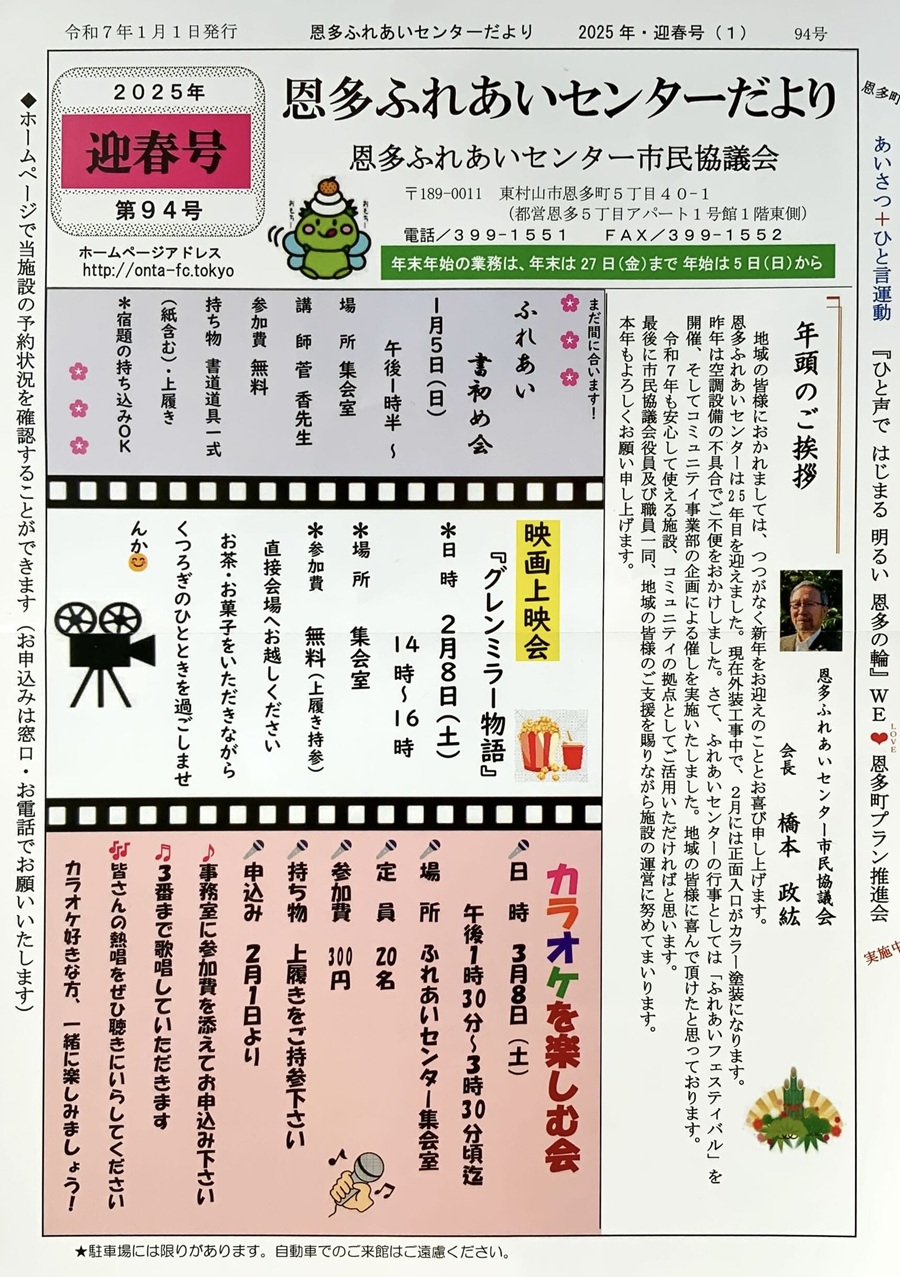 令和7年1月1日発行 恩多ふれあいセンターだより 2025年・迎春号(1) 94号
2025年
迎春号
第94号
恩多ふれあいセンターだより
恩多ふれあいセンター市民協議会
〒189-0011 東村山市恩多町5丁目40-1
(都営恩多5丁目アパート1号館1階東側)
電話/399-1551 FAX/399-1552
ホームページアドレス
http://onta-fc.tokyo
年末年始の業務は、年末は27日(金)まで 年始は5日(日)から
年頭のご挨拶
恩多ふれあいセンター市民協議会
会長 橋本 政紘
地域の皆様におかれましては、つつがなく新年をお迎えのこととお喜び申し上げます。
恩多ふれあいセンターは25年目を迎えました。現在外装工事中で、2月には正面入口がカラー塗装になります。
昨年は空調設備の不具合でご不便をおかけしました。さて、ふれあいセンターの行事としては「ふれあいフェスティバル」を
開催、そしてコミュニティ事業部の企画による催しを実施いたしました。地域の皆様に喜んで頂けたと思っております。
令和7年も安心して使える施設、コミュニティの拠点としてご活用いただければと思います。
最後に市民協議会役員及び職員一同、地域の皆様のご支援を賜りながら施設の運営に努めてまいります。
本年もよろしくお願い申し上げます。
まだ間に合います!
ふれあい
書初め会
1月5日(日)
午後1時半~
場 所 集会室
講 師 菅 香先生
参加費 無料
持ち物 書道道具一式
(紙含む)・上履き
*宿題の持ち込みOK
映画上映会
『グレンミラー物語』
*日 時 2月8日(土)
14時~16時
*場 所 集会室
*参加費 無料(上履き持参)
直接会場へお越しください
お茶・お菓子をいただきながら
くつろぎのひとときを過ごしませ
んか😊
カラオケを楽しむ会
🎤日 時 3月8日(土)
午後1時30分~3時30分頃迄
🎤場 所 ふれあいセンター集会室
🎤定 員 20名
🎤参加費 300円
🎤持ち物 上履きをご持参下さい
🎤申込み 2月1日より
♪事務室に参加費を添えてお申込み下さい
♬3番まで歌唱していただきます
🎶皆さんの熱唱をぜひ聴きにいらしてください
カラオケ好きな方、一緒に楽しみましょう!
◆ホームページで当施設の予約状況を確認することができます(お申込みは窓口・お電話でお願いいたします)
恩多町
あいさつ+ひと言運動 『ひと声で はじまる 明るい 恩多の輪』 WE❤恩多町プラン推進会
LOVE
実施中
★駐車場には限りがあります。自動車でのご来館はご遠慮ください。